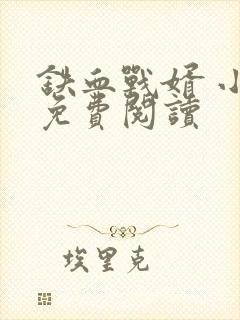 鐵血戰婿 小
免費閱讀
埃里克